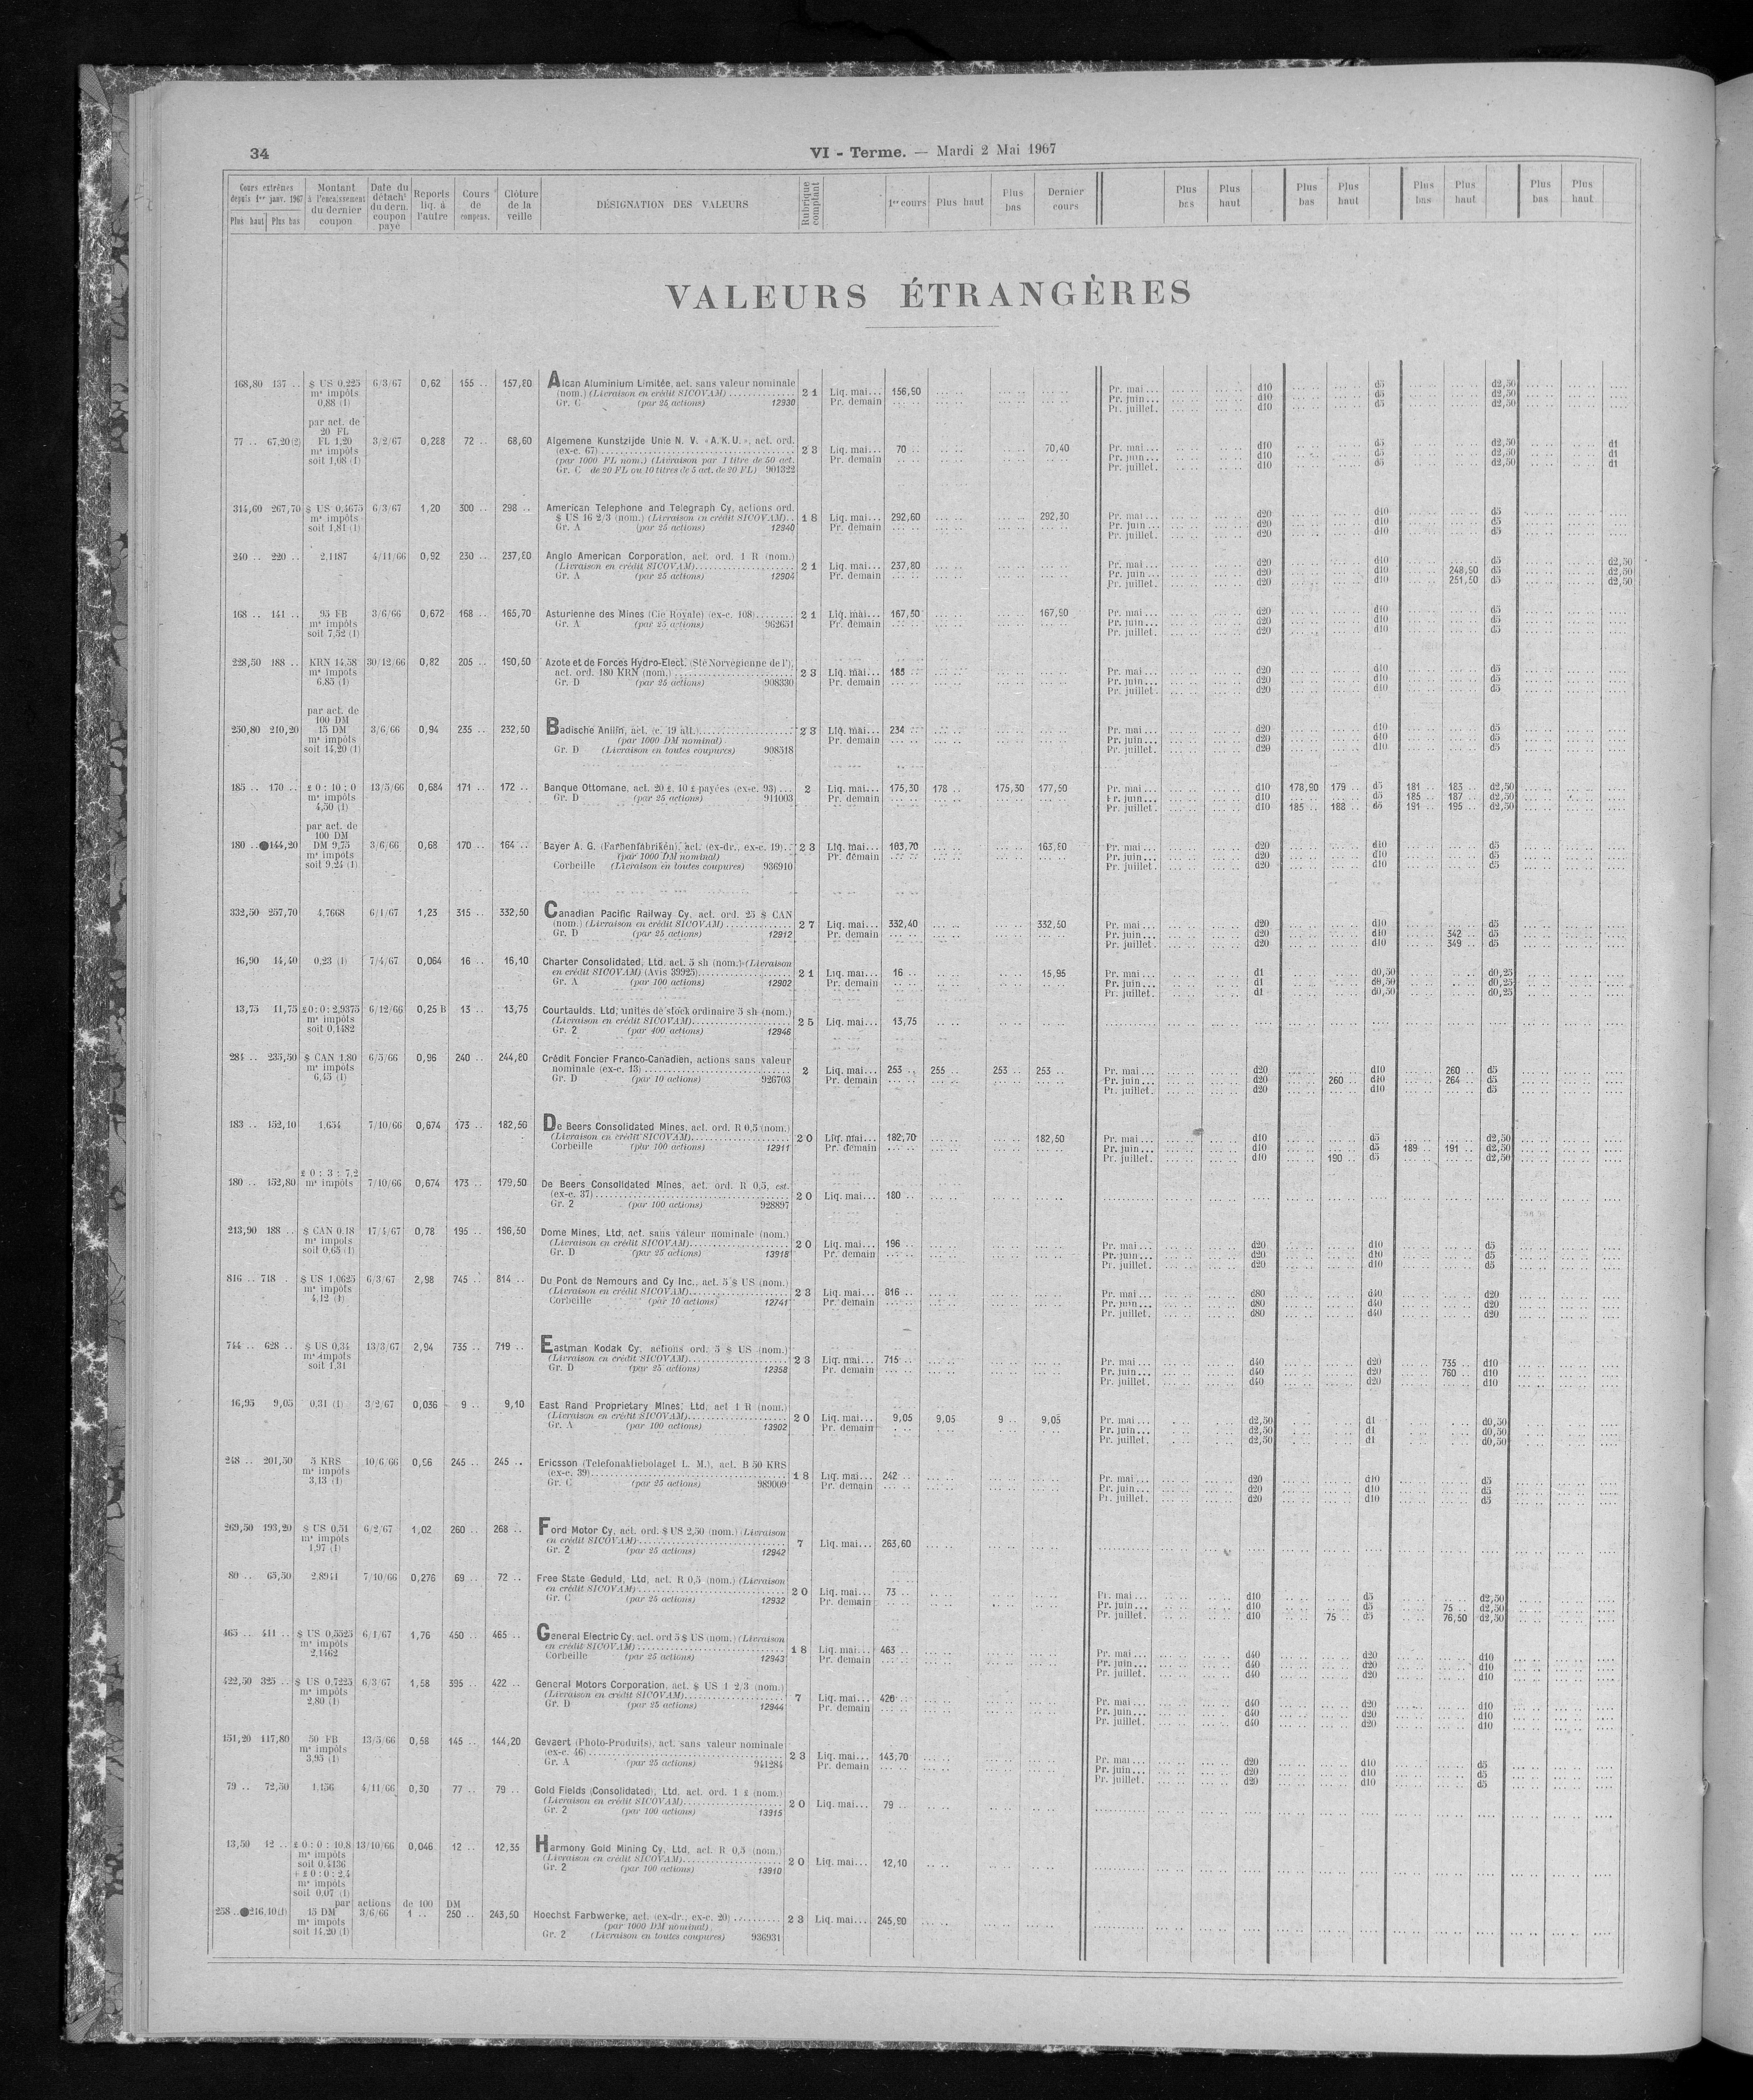 34
VI - Terme. — Mardi 2 Mai 1967
Cours extrêmes depuis 1er janv. 1967 Plus haut Plus bas | Montant à l'encaissement du dernier coupon | Date du détacht du dern. coupon payé | Reports liq. à l'autre | Cours de compens. | Clôture de la veille | DÉSIGNATION DES VALEURS | Rubrique comptant | 1er cours | Plus haut | Plus bas | Dernier cours | Plus bas | Plus haut | Plus bas | Plus haut | Plus bas | Plus haut | Plus bas | Plus haut
VALEURS ÉTRANGÈRES
168,80 137 .. $ US 0,225 6/3/67 0,62 155 .. 157,80 Alcan Aluminium Limitée, act. sans valeur nominale
mˢ impôts (nom.) (Livraison en crédit SICOVAM) 21 Liq. mai... 156,90 Pr. mai... d10 d5 d2,50
0,88 (1) Gr. C (par 25 actions) 12930 Pr. demain Pr. juin... d10 d5 d2,50
Pr. juillet. d10 d5 d2,50
par act. de
20 FL
77 .. 67,20(2) FL 1,20 3/2/67 0,288 72 .. 68,60 Algemene Kunstzijde Unie N. V. «A.K.U.», act. ord.
mˢ impôts (ex-c. 67) 23 Liq. mai... 70 .. 70,40 Pr. mai... d10 d5 d2,50 d1
soit 1,68 (1) (par 1000 FL nom.) (Livraison par 1 titre de 50 act. Pr. demain Pr. juin... d10 d5 d2,50 d1
Gr. C de 20 FL ou 10 titres de 5 act. de 20 FL) 901322 Pr. juillet. d10 d5 d2,50 d1
314,60 267,70 $ US 0,4675 6/3/67 1,20 300 .. 298 .. American Telephone and Telegraph Cy, actions ord.
mˢ impôts $ US 16 2/3 (nom.) (Livraison en crédit SICOVAM).. 18 Liq. mai... 292,60 292,50 Pr. mai... d20 d10 d5
soit 1,81 (1) Gr. A (par 25 actions) 12940 Pr. demain Pr. juin... d20 d10 d5
Pr. juillet. d20 d10 d5
240 .. 220 .. 2,1187 4/11/66 0,92 230 .. 237,80 Anglo American Corporation, act. ord. 1 R (nom.)
(Livraison en crédit SICOVAM) 21 Liq. mai... 237,80 Pr. mai... d20 d10 d5 d2,50
Gr. A (par 25 actions) 12904 Pr. demain Pr. juin... d20 d10 248,90 d5 d2,50
Pr. juillet. d20 d10 251,50 d5 d2,50
168 .. 141 .. 95 FB 3/6/66 0,672 168 .. 165,70 Asturienne des Mines (Cie Royale) (ex-c. 108) 21 Liq. mai... 167,50 167,90 Pr. mai... d20 d10 d5
mˢ impôts Gr. A (par 25 actions) 962651 Pr. demain Pr. juin... d20 d10 d5
soit 7,52 (1) Pr. juillet. d20 d10 d5
228,50 188 .. KRN 14,58 30/12/66 0,82 205 .. 190,50 Azote et de Forces Hydro-Elect. (Sté Norvégienne de l'),
mˢ impôts act. ord. 180 KRN (nom.) 23 Liq. mai... 185 Pr. mai... d20 d10 d5
6,85 (1) Gr. D (par 25 actions) 908330 Pr. demain Pr. juin... d20 d10 d5
Pr. juillet. d20 d10 d5
par act. de
100 DM
250,80 210,20 15 DM 3/6/66 0,94 235 .. 232,50 Badische Anilin, act. (c. 19 att.) 23 Liq. mai... 234 Pr. mai... d20 d10 d5
mˢ impôts (par 1000 DM nominal) Pr. demain Pr. juin... d20 d10 d5
soit 14,20 (1) Gr. D (Livraison en toutes coupures) 908518 Pr. juillet. d20 d10 d5
185 .. 170 .. £ 0 : 10 : 0 13/5/66 0,684 171 .. 172 .. Banque Ottomane, act. 20 £, 10 £ payées (ex-c. 93) ... 2 Liq. mai... 175,30 178 .. 175,30 177,50 Pr. mai... d10 178,90 179 .. d5 181 .. 183 .. d2,50
mˢ impôts Gr. D (par 25 actions) 911003 Pr. demain Pr. juin... d10 d5 185 .. 187 .. d2,50
4,50 (1) Pr. juillet. d10 185 .. 188 .. d5 191 .. 195 .. d2,50
par act. de
100 DM
180 ..●144,20 DM 9,75 3/6/66 0,68 170 .. 164 .. Bayer A. G. (Farbenfabriken), act. (ex-dr., ex-c. 19) 23 Liq. mai... 163,70 163,80 Pr. mai... d20 d10 d5
mˢ impôts (par 1000 DM nominal) Pr. demain Pr. juin... d20 d10 d5
soit 9,24 (1) Corbeille (Livraison en toutes coupures) 936910 Pr. juillet. d20 d10 d5
332,50 257,70 4,7668 6/1/67 1,23 315 .. 332,50 Canadian Pacific Railway Cy, act. ord. 25 $ CAN
(nom.) (Livraison en crédit SICOVAM) 27 Liq. mai... 332,40 332,50 Pr. mai... d20 d10 d5
Gr. D (par 25 actions) 12912 Pr. demain Pr. juin... d20 d10 342 .. d5
Pr. juillet. d20 d10 349 .. d5
16,90 14,40 0,23 (1) 7/4/67 0,064 16 .. 16,10 Charter Consolidated, Ltd, act. 5 sh (nom.) (Livraison
en crédit SICOVAM) (Avis 39925) 21 Liq. mai... 16 .. 15,95 Pr. mai... d1 d0,50 d0,25
Gr. A (par 100 actions) 12902 Pr. demain Pr. juin... d1 d0,50 d0,25
Pr. juillet. d1 d0,50 d0,25
13,75 11,75 £ 0 : 0 : 2,9375 6/12/66 0,25 B 13 .. 13,75 Courtaulds, Ltd, unités de stock ordinaire 5 sh (nom.)
mˢ impôts (Livraison en crédit SICOVAM) 25 Liq. mai... 13,75
soit 0,1482 Gr. 2 (par 400 actions) 12946
284 .. 235,50 $ CAN 1,80 6/5/66 0,96 240 .. 244,80 Crédit Foncier Franco-Canadien, actions sans valeur
mˢ impôts nominale (ex-c. 13) 2 Liq. mai... 253 .. 255 .. 253 .. 253 .. Pr. mai... d20 d10 260 .. d5
6,45 (1) Gr. D (par 10 actions) 926703 Pr. demain Pr. juin... d20 260 .. d10 264 .. d5
Pr. juillet. d20 d10 d5
183 .. 152,10 1,654 7/10/66 0,674 173 .. 182,50 De Beers Consolidated Mines, act. ord. R 0,5 (nom.)
(Livraison en crédit SICOVAM) 20 Liq. mai... 182,70 182,50 Pr. mai... d10 d5 d2,50
Corbeille (par 100 actions) 12911 Pr. demain Pr. juin... d10 d5 189 .. 191 .. d2,50
Pr. juillet. d10 190 .. d5 d2,50
£ 0 : 3 : 7,2
180 .. 152,80 mˢ impôts 7/10/66 0,674 173 .. 179,50 De Beers Consolidated Mines, act. ord. R 0,5, est.
(ex-c. 37) 20 Liq. mai... 180 ..
Gr. 2 (par 100 actions) 928897
213,90 188 .. $ CAN 0,18 17/4/67 0,78 195 .. 196,50 Dome Mines, Ltd, act. sans valeur nominale (nom.)
mˢ impôts (Livraison en crédit SICOVAM) 20 Liq. mai... 196 .. Pr. mai... d20 d10 d5
soit 0,65 (1) Gr. D (par 25 actions) 13918 Pr. demain Pr. juin... d20 d10 d5
Pr. juillet. d20 d10 d5
816 .. 718 . $ US 1,0625 6/3/67 2,98 745 .. 814 .. Du Pont de Nemours and Cy Inc., act. 5 $ US (nom.)
mˢ impôts (Livraison en crédit SICOVAM) 23 Liq. mai... 816 .. Pr. mai... d80 d40 d20
4,12 (1) Corbeille (par 10 actions) 12741 Pr. demain Pr. juin... d80 d40 d20
Pr. juillet. d80 d40 d20
744 .. 628 .. $ US 0,34 13/3/67 2,94 735 .. 719 .. Eastman Kodak Cy, actions ord. 5 $ US (nom.)
mˢ impôts (Livraison en crédit SICOVAM) 23 Liq. mai... 715 .. Pr. mai... d40 d20 735 .. d10
soit 1,31 Gr. D (par 25 actions) 12958 Pr. demain Pr. juin... d40 d20 760 .. d10
Pr. juillet. d40 d20 d10
16,95 9,05 0,31 (1) 3/2/67 0,036 9 .. 9,10 East Rand Proprietary Mines, Ltd, act 1 R (nom.)
(Livraison en crédit SICOVAM) 20 Liq. mai... 9,05 9,05 9 .. 9,05 Pr. mai... d2,50 d1 d0,50
Gr. A (par 100 actions) 13902 Pr. demain Pr. juin... d2,50 d1 d0,50
Pr. juillet. d2,50 d1 d0,50
248 .. 201,50 5 KRS 10/6/66 0,96 245 .. 245 .. Ericsson (Telefonaktiebolaget L. M.), act. B 50 KRS
mˢ impôts (ex-c. 39) 18 Liq. mai... 242 .. Pr. mai... d20 d10 d5
3,13 (1) Gr. C (par 25 actions) 989009 Pr. demain Pr. juin... d20 d10 d5
Pr. juillet. d20 d10 d5
269,50 193,20 $ US 0,51 6/2/67 1,02 260 .. 268 .. Ford Motor Cy, act. ord. $ US 2,50 (nom.) (Livraison
mˢ impôts en crédit SICOVAM) 7 Liq. mai... 263,60
1,97 (1) Gr. 2 (par 25 actions) 12942
80 .. 65,50 2,8911 7/10/66 0,276 69 .. 72 .. Free State Geduld, Ltd, act. R 0,5 (nom.) (Livraison
en crédit SICOVAM) 20 Liq. mai... 73 .. Pr. mai... d10 d5 d2,50
Gr. C (par 25 actions) 12932 Pr. demain Pr. juin... d10 d5 75 .. d2,50
Pr. juillet. d10 75 .. d5 76,50 d2,50
465 .. 411 .. $ US 0,5525 6/1/67 1,76 450 .. 465 .. General Electric Cy, act. ord 5 $ US (nom.) (Livraison
mˢ impôts en crédit SICOVAM) 18 Liq. mai... 463 .. Pr. mai... d40 d20 d10
2,1462 Corbeille (par 25 actions) 12943 Pr. demain Pr. juin... d40 d20 d10
Pr. juillet. d40 d20 d10
422,50 325 .. $ US 0,7225 6/3/67 1,58 395 .. 422 .. General Motors Corporation, act. $ US 1 2/3 (nom.)
mˢ impôts (Livraison en crédit SICOVAM) 7 Liq. mai... 426 .. Pr. mai... d40 d20 d10
2,80 (1) Gr. D (par 25 actions) 12944 Pr. demain Pr. juin... d40 d20 d10
Pr. juillet. d40 d20 d10
151,20 117,80 50 FB 13/5/66 0,58 145 .. 144,20 Gevaert (Photo-Produits), act. sans valeur nominale
mˢ impôts (ex-c. 46) 23 Liq. mai... 143,70 Pr. mai... d20 d10 d5
3,95 (1) Gr. A (par 25 actions) 941284 Pr. demain Pr. juin... d20 d10 d5
Pr. juillet. d20 d10 d5
79 .. 72,50 1,156 4/11/66 0,30 77 .. 79 .. Gold Fields (Consolidated), Ltd, act. ord. 1 £ (nom.)
(Livraison en crédit SICOVAM) 20 Liq. mai... 79 ..
Gr. 2 (par 100 actions) 13915
13,50 12 .. £ 0 : 0 : 10,8 13/10/66 0,046 12 .. 12,35 Harmony Gold Mining Cy, Ltd, act. R 0,5 (nom.)
mˢ impôts (Livraison en crédit SICOVAM) 20 Liq. mai... 12,10
soit 0,4136 Gr. 2 (par 100 actions) 13910
+ £ 0 : 0 : 2,4
mˢ impôts
soit 0,07 (1)
par actions de 100 DM
258 ..●216,10(1) 15 DM 3/6/66 1 .. 250 .. 243,50 Hoechst Farbwerke, act. (ex-dr., ex-c. 20) 23 Liq. mai... 245,90
mˢ impôts (par 1000 DM nominal)
soit 14,20 (1) Gr. 2 (Livraison en toutes coupures) 936931